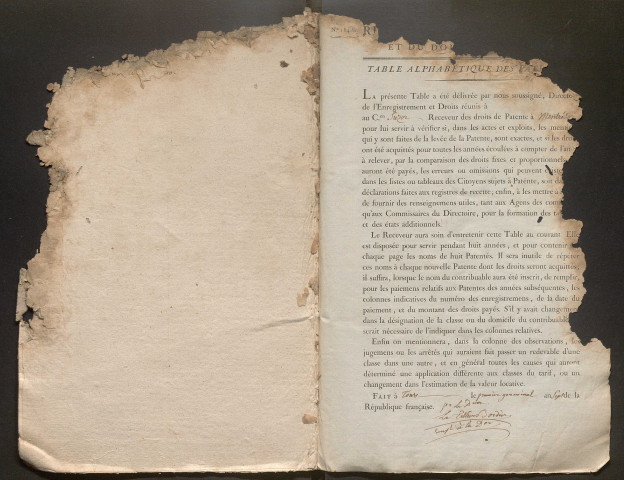 R
ET DU DO
TABLE ALPHABÉTIQUE DES PAT
LA présente Table a été délivrée par nous soussigné, Direc
de l'Enregistrement et Droits réunis à
au C.en Receveur des droits de Patente à
pour lui servir à vérifier si, dans les actes et exploits, les men
qui y sont faites de la levée de la Patente, sont exactes, et si les dro
ont été acquittés pour toutes les années écoulées à compter de l'an
à relever, par la comparaison des droits fixes et proportionnel
auront été payés, les erreurs ou omissions qui peuvent
dans les listes ou tableaux des Citoyens sujets à Patente, soit da
déclarations faites aux registres de recette; enfin, à les mettre
de fournir des renseignemens utiles, tant aux Agens des com
qu'aux Commissaires du Directoire, pour la formation des
et des états additionnels.
Le Receveur aura soin d'entretenir cette Table au courant. Elle
est disposée pour servir pendant huit années, et pour contenir
chaque page les noms de huit Patentés. Il sera inutile de répéter
ces noms à chaque nouvelle Patente dont les droits seront acquittés
il suffira, lorsque le nom du contribuable aura été inscrit, de remplir
pour les paiemens relatifs aux Patentes des années subséquentes, les
colonnes indicatives du numéro des enregistremens, de la date du
paiement, et du montant des droits payés. S'il y avait changement
dans la désignation de la classe ou du domicile du contribuable
serait nécessaire de l'indiquer dans les colonnes relatives.
Enfin on mentionnera, dans la colonne des observations, les
jugemens ou les arrêtés qui auraient fait passer un redevable d'une
classe dans une autre, et en général toutes les causes qui auront
déterminé une application différente aux classes du tarif, ou un
changement dans l'estimation de la valeur locative.
FAIT à Tours le premier germinal an Sept de la
République française.